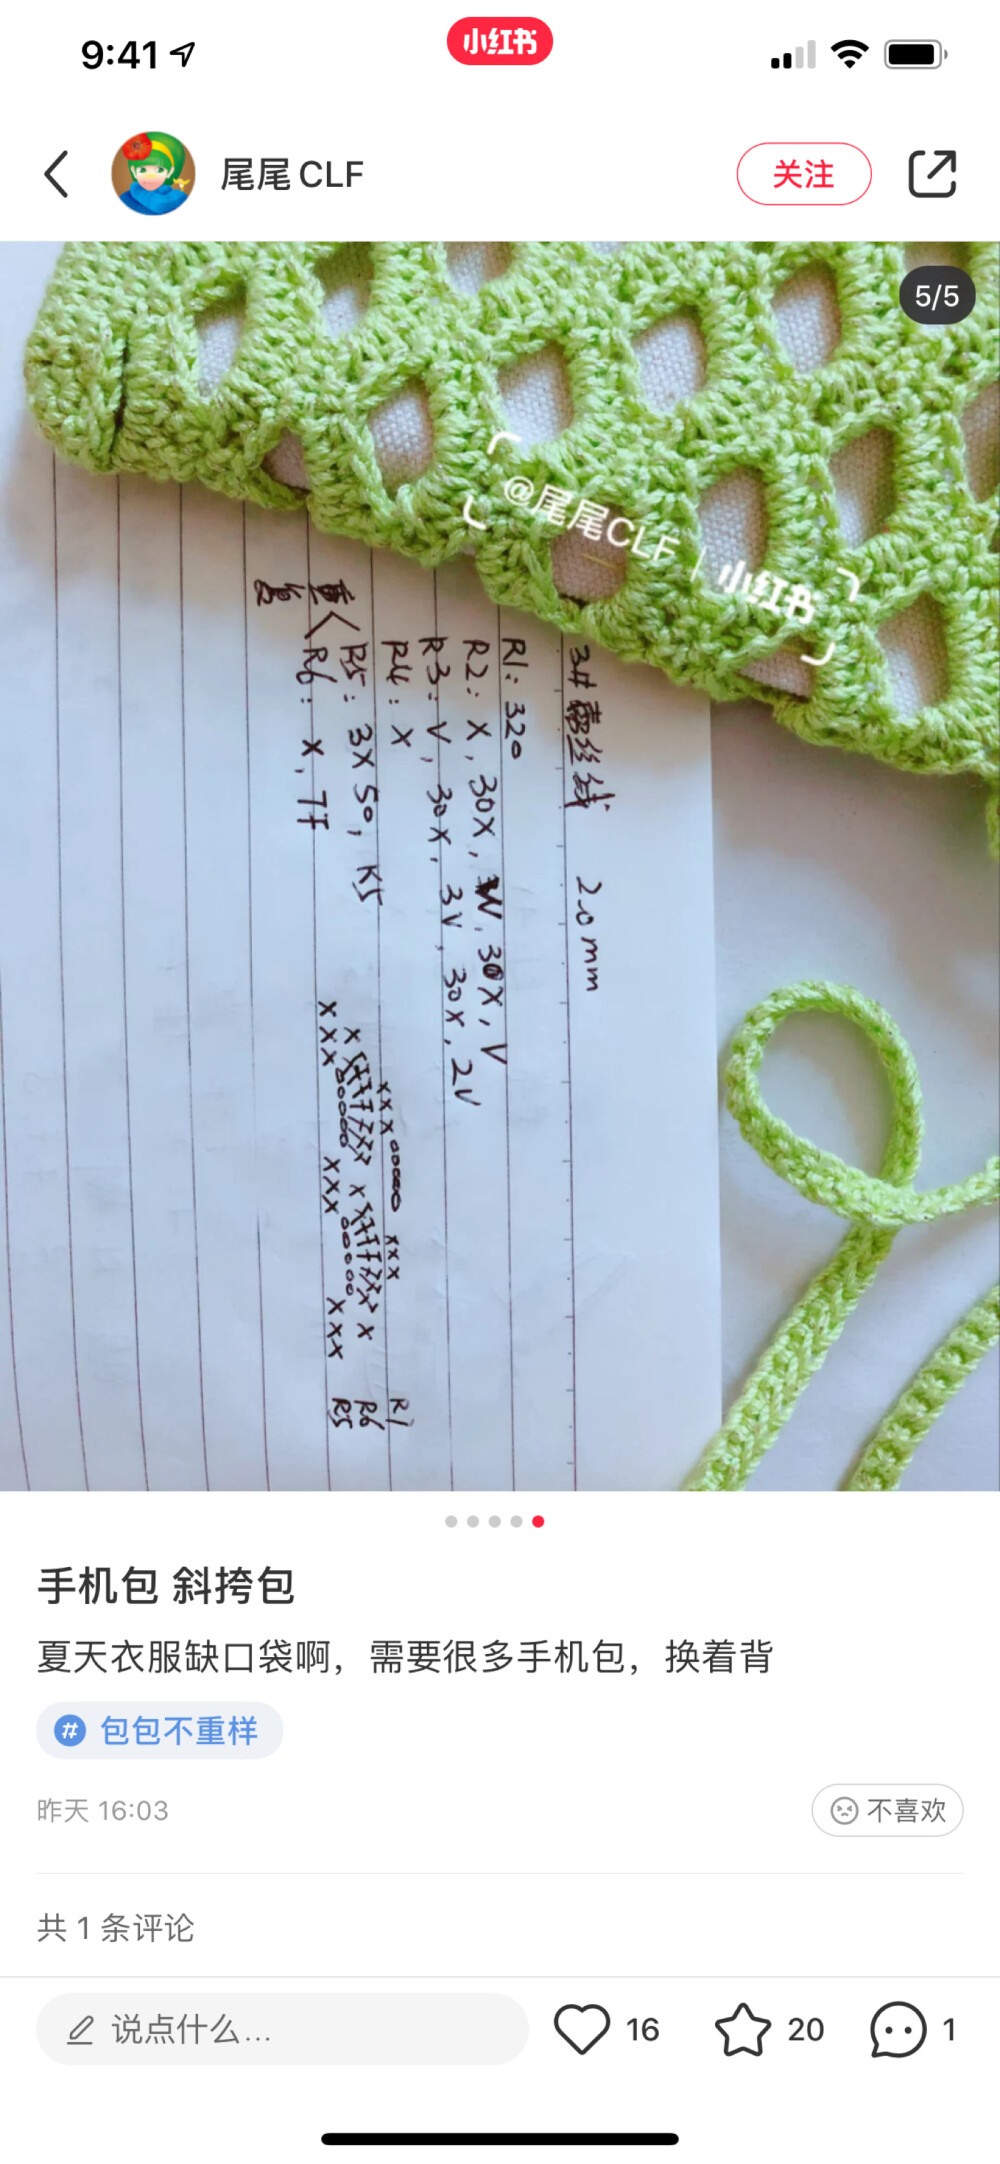 9:41
小红书
尾尾 CLF
关注
5/5
@尾尾CLF | 小红书
3#蕾丝线 2.0mm
R1: 320
R2: X, 30X, W, 30X, V
R3: V, 30X, 3V, 30X, 2V
R4: X
重复
R5: 3X 50, K5
R6: X, 7F
xxx00000 xxx R7
xxx00000 xxx00000 xxx R5
手机包 斜挎包
夏天衣服缺口袋啊，需要很多手机包，换着背
# 包包不重样
昨天 16:03
不喜欢
共 1 条评论
说点什么...
16
20
1